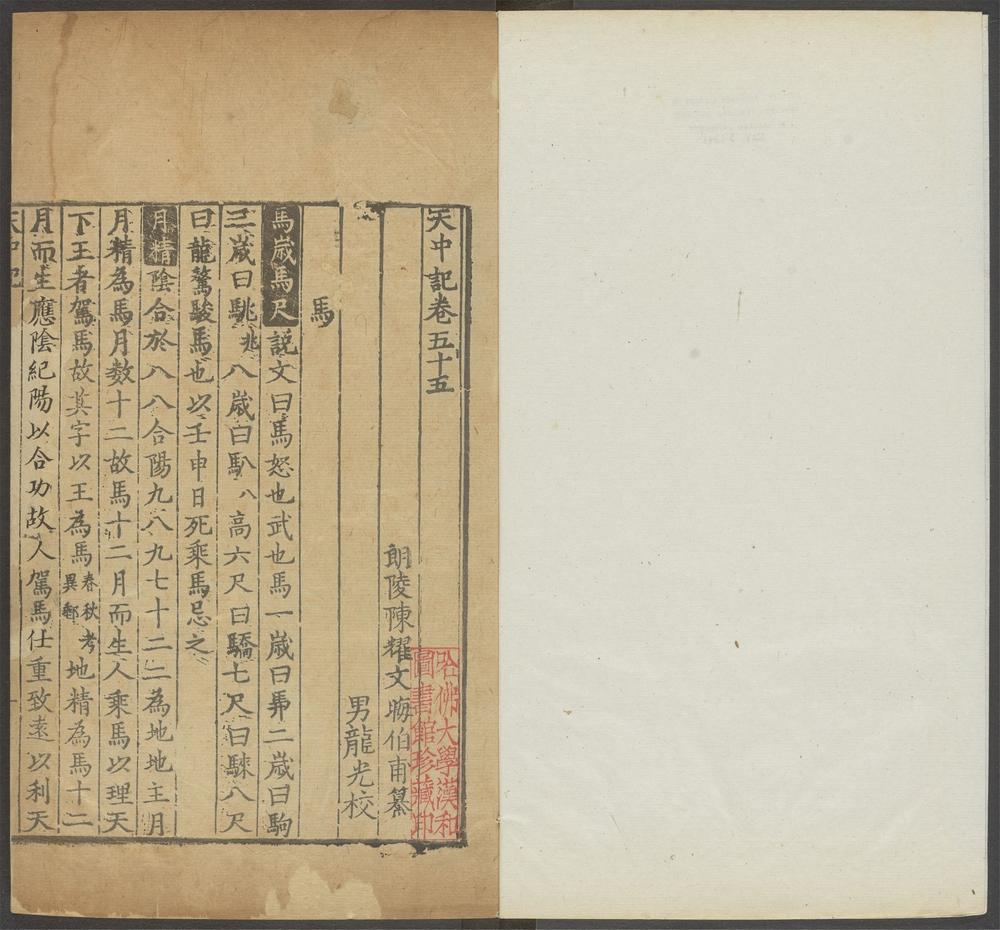 天中記卷五十五
朗陵陳耀文晦伯甫纂
男龍光校
馬
馬歲馬尺說文曰馬怒也武也馬一歲曰馬二歲曰駒
三歲曰駣兆八歲曰馴八高六尺曰驕七尺曰騋八尺
曰龍驁駿馬也以壬申日死乘馬忌之
月精陰合於八八合陽九八九七十二二為地地主月
月精為馬月數十二故馬十二月而生人乘馬以理天
下王者駕馬故其字以王為馬春秋考異郵地精為馬十二
月而生應陰紀陽以合功故人駕馬任重致遠以利天
哈佛大學漢和
圖書館珍藏印